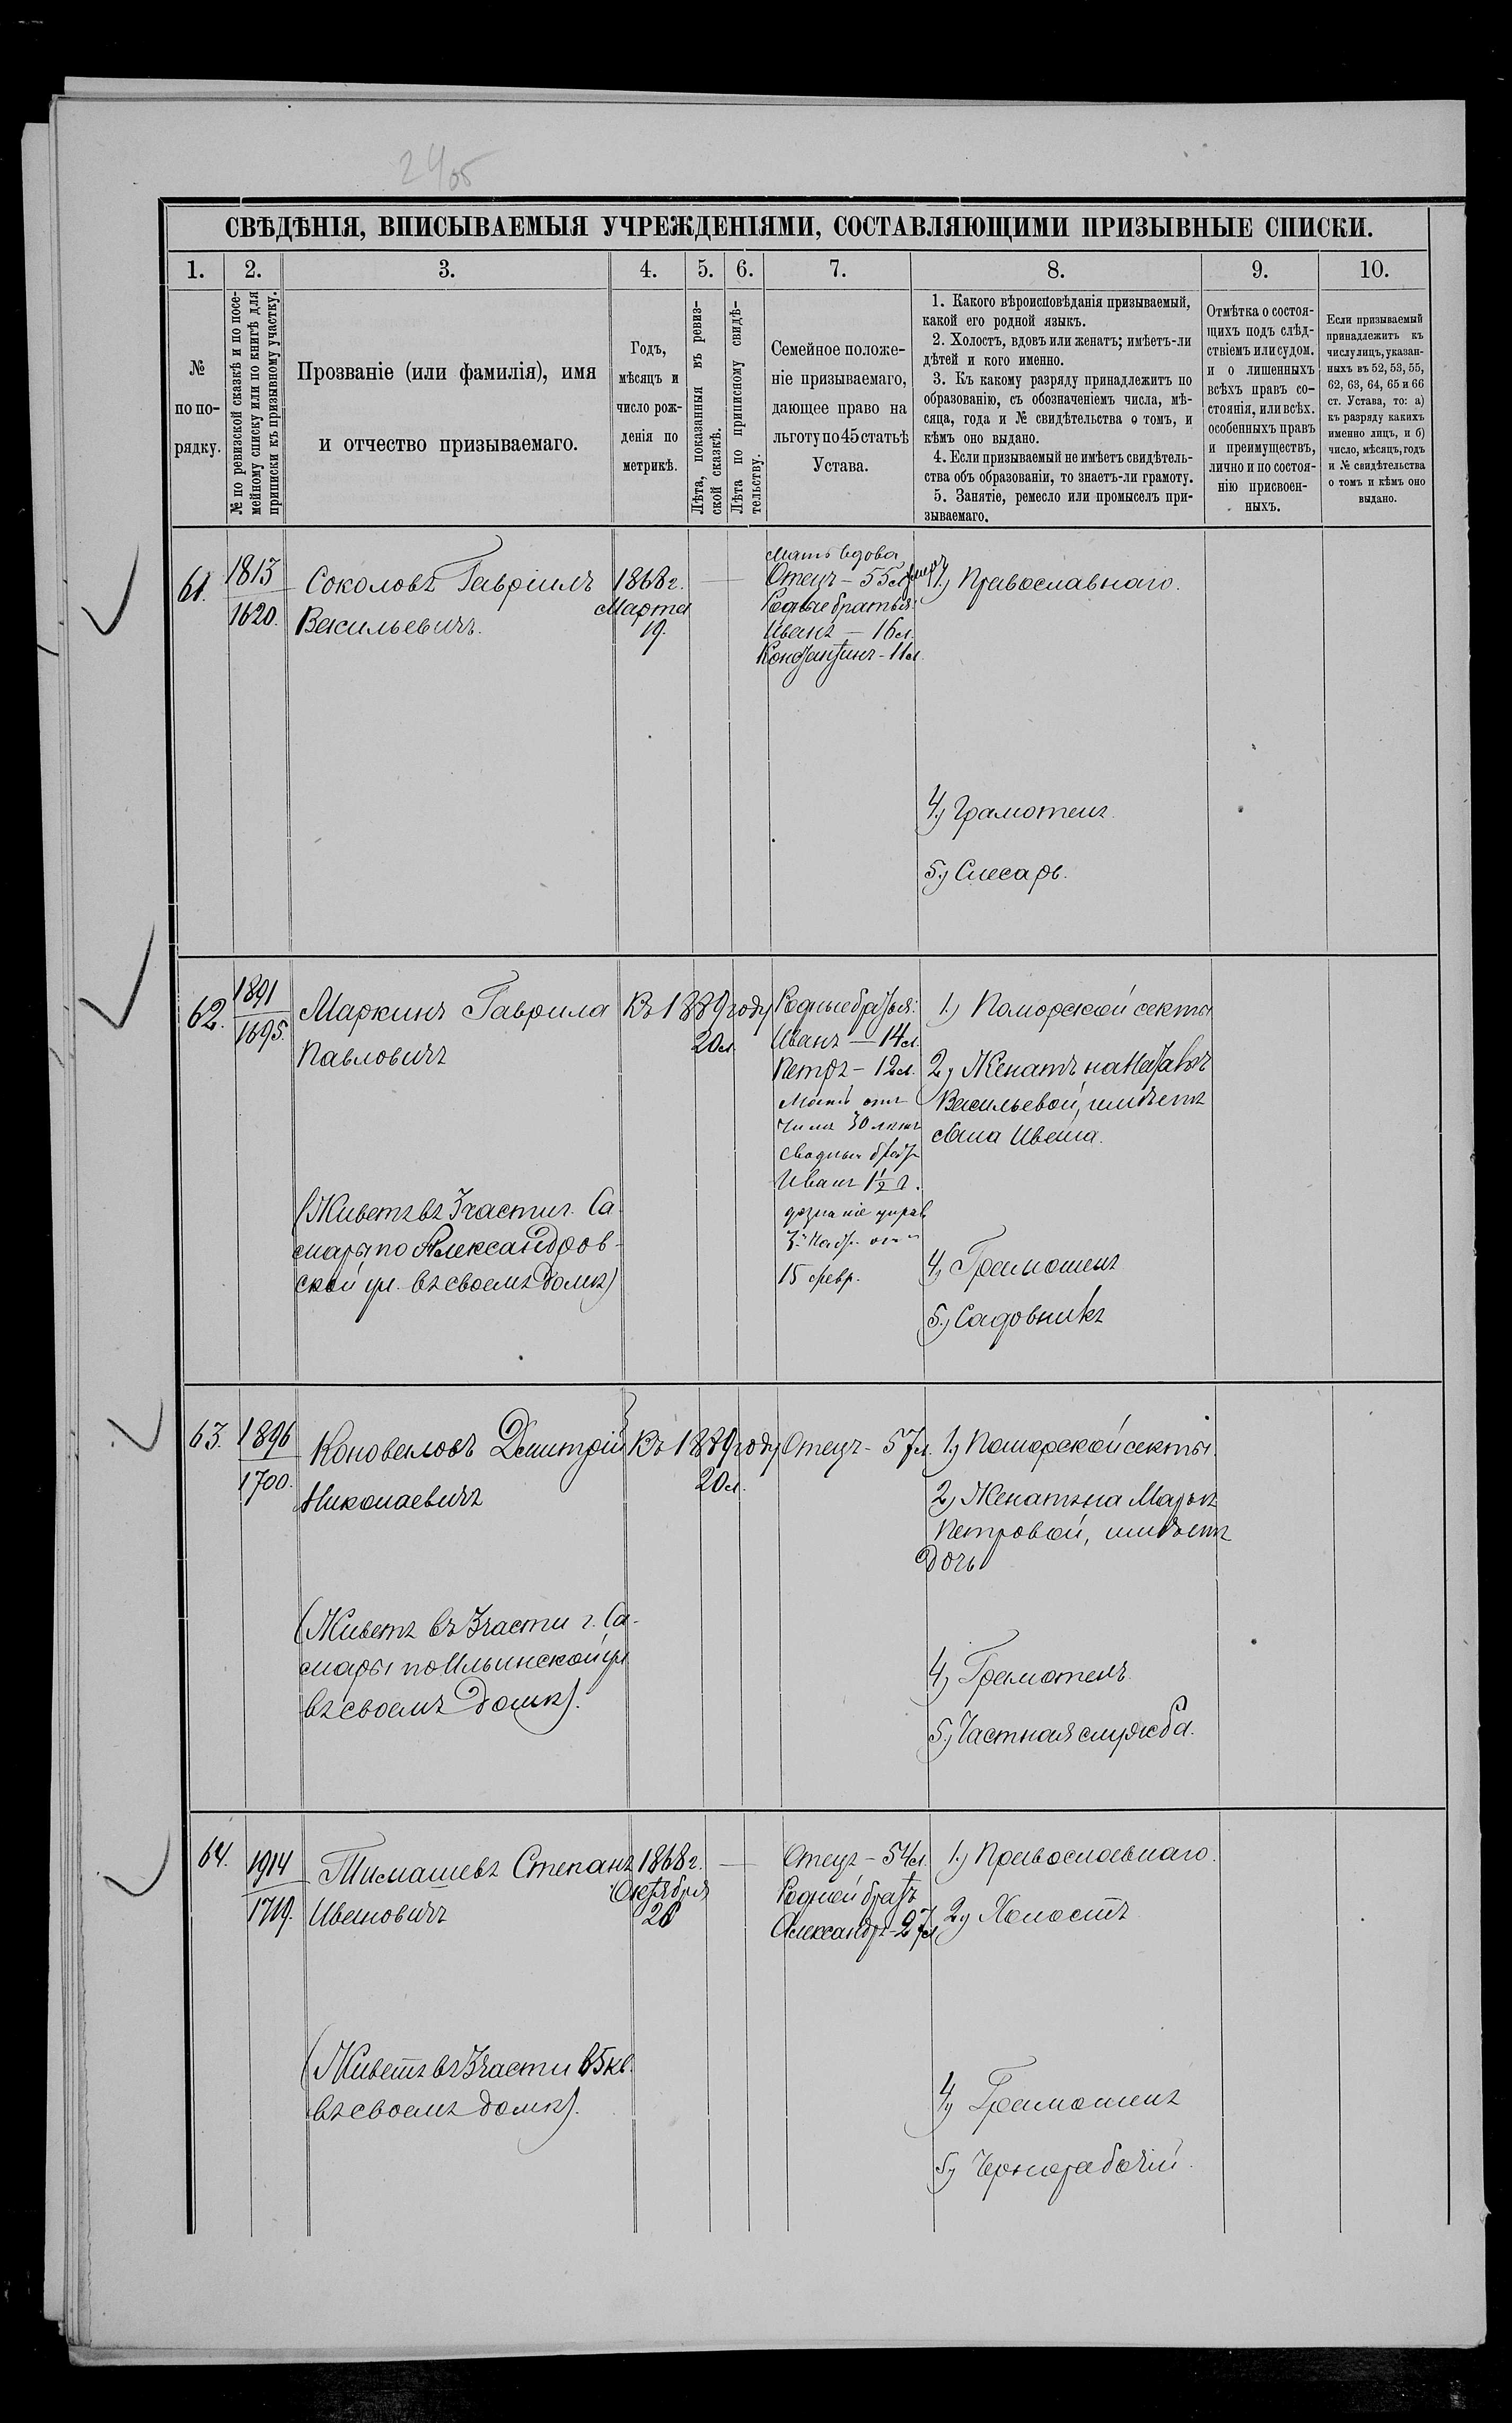 2405
СВѢДѢНІЯ, ВПИСЫВАЕМЫЯ УЧРЕЖДЕНІЯМИ, СОСТАВЛЯЮЩИМИ ПРИЗЫВНЫЕ СПИСКИ.
1. 2. 3. 4. 5. 6. 7. 8. 9. 10.
№
по по-
рядку.
№ по ревизской сказкѣ и по посе-
мейному списку или по книгѣ для
приписки къ призывному участку.
Прозваніе (или фамилія), имя
и отчество призываемаго.
Годъ,
мѣсяцъ и
число рож-
денія по
метрикѣ.
Лѣта, показанныя въ ревиз-
ской сказкѣ.
Лѣта по приписному свидѣ-
тельству.
Семейное положе-
ніе призываемаго,
дающее право на
льготу по 45 статьѣ
Устава.
1. Какого вѣроисповѣданія призываемый,
какой его родной языкъ.
2. Холостъ, вдовъ или женатъ; имѣетъ-ли
дѣтей и кого именно.
3. Къ какому разряду принадлежитъ по
образованію, съ обозначеніемъ числа, мѣ-
сяца, года и № свидѣтельства о томъ, и
кѣмъ оно выдано.
4. Если призываемый не имѣетъ свидѣтель-
ства объ образованіи, то знаетъ-ли грамоту.
5. Занятіе, ремесло или промыселъ при-
зываемаго.
Отмѣтка о состоя-
щихъ подъ слѣд-
ствіемъ или судом.
и о лишенныхъ
всѣхъ правъ со-
стоянія, или всѣх.
особенныхъ правъ
и преимуществъ,
лично и по состоя-
нію присвоен-
ныхъ.
Если призываемый
принадлежитъ къ
числу лицъ, указан-
ныхъ въ 52, 53, 55,
62, 63, 64, 65 и 66
ст. Устава, то: а)
къ разряду какихъ
именно лицъ, и б)
число, мѣсяцъ, годъ
и № свидѣтельства
о томъ и кѣмъ оно
выдано.
61.
1813
1620.
Соколовъ Гавріилъ
Васильевичъ.
1868 г.
Марта
19.
Мать вдова
Отецъ – 55 л. умеръ
Родные братья:
Иванъ – 16 л.
Константинъ – 11 л.
1.) Православнаго.
4.) Грамотенъ.
5.) Слесарь.
62.
1891
1695.
Маркинъ Гаврила
Павловичъ
(Живетъ въ 3 части г. Са-
мары по Александров-
ской ул. въ своемъ домѣ)
Въ 1889 году
20 л.
Родные братья:
Иванъ – 14 л.
Петръ – 12 л.
Иванъ 1½ г.
15 февр.
1.) Поморской секты
2.) Женатъ на Натальѣ
Васильевой, имѣетъ
сына Ивана.
4.) Грамотенъ
5.) Садовникъ
63.
1896
1700.
Коноваловъ Дмитрій
Николаевичъ
(Живетъ въ 3 части г. Са-
мары по Ильинской ул
въ своемъ домѣ).
Въ 1889 году
20 л.
Отецъ – 57 л.
1.) Поморской секты.
2.) Женатъ на Марьѣ
Петровой, имѣетъ
дочь
4.) Грамотенъ.
5.) Частная служба.
64.
1914
1719.
Тимашевъ Степанъ
Ивановичъ
(Живетъ въ 3 части 65 кв.
въ своемъ домѣ).
1868 г.
Октября
26
Отецъ – 54 л.
Родной братъ
Александръ – 27 л
1.) Православнаго.
2.) Холостъ
4.) Грамотенъ
5.) Чернорабочій.